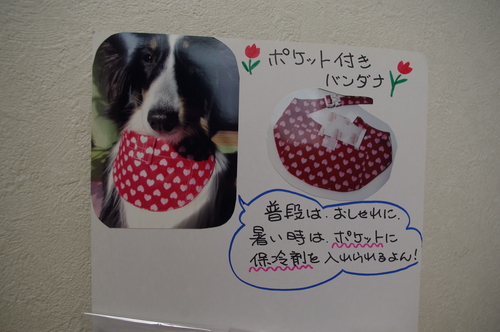 ポケット付き
バンダナ
普段は、おしゃれに、
暑い時は、ポケットに
保冷剤を入れられるよん!